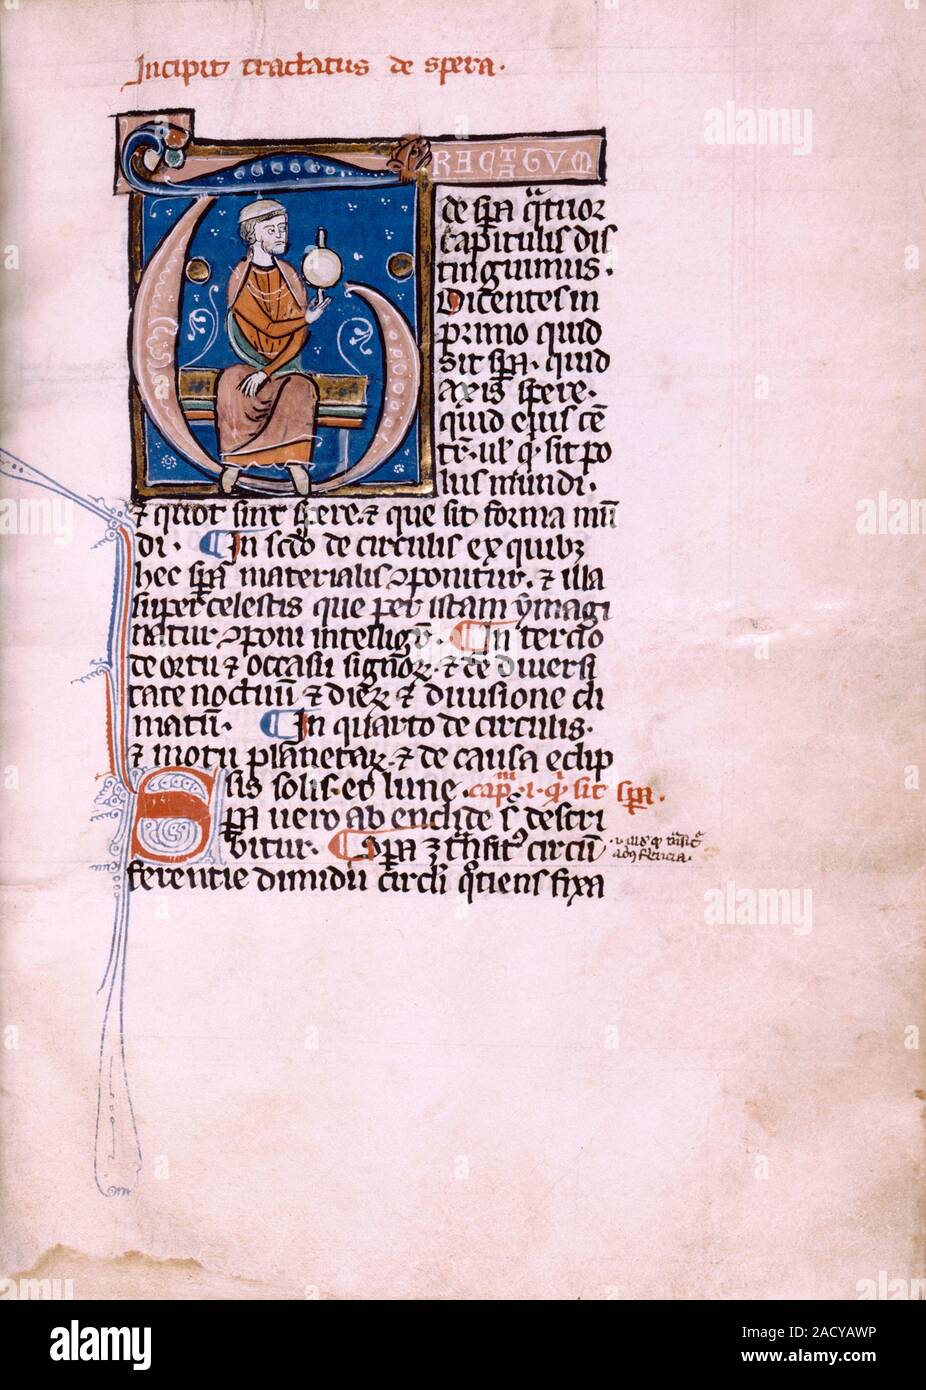 Incipit tractatus de spera.
TRACTATUM
de spa qtuor
capitulis dis
tinguimus.
Dicentes in
primo quid
sit spa. quid
axis spere.
quid eius cē
tr. ul' q sit po
lus mundi.
⁊ quot sint spere. ⁊ que sit forma mū
di. In scdo de circulis ex quibꝫ
hec spa materialis ↄponitur. ⁊ illa
super celestis que per istam ymagi
natur ↄponi intelligit̄. In tercio
de ortu ⁊ occasu signoꝝ. ⁊ de diversi
tate noctium ⁊ dieꝝ ⁊ divisione cli
matū. In quarto de circulis.
⁊ motu planetaꝝ. ⁊ de causa eclip
sis solis. et lune. capm. i. q sit spa.
Spa vero ab euclide s descri
bitur. Spa est circū
ferentie dimidii circli qtiens fixa
alamy
Image ID: 2ACYAWP
www.alamy.com